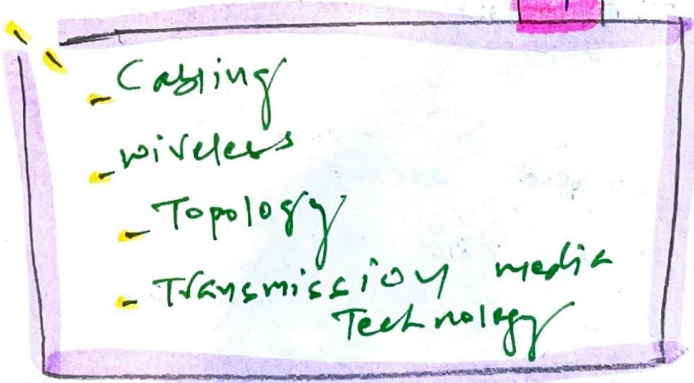 - Cabling
- wireless
- Topology
- Transmission media
Technology